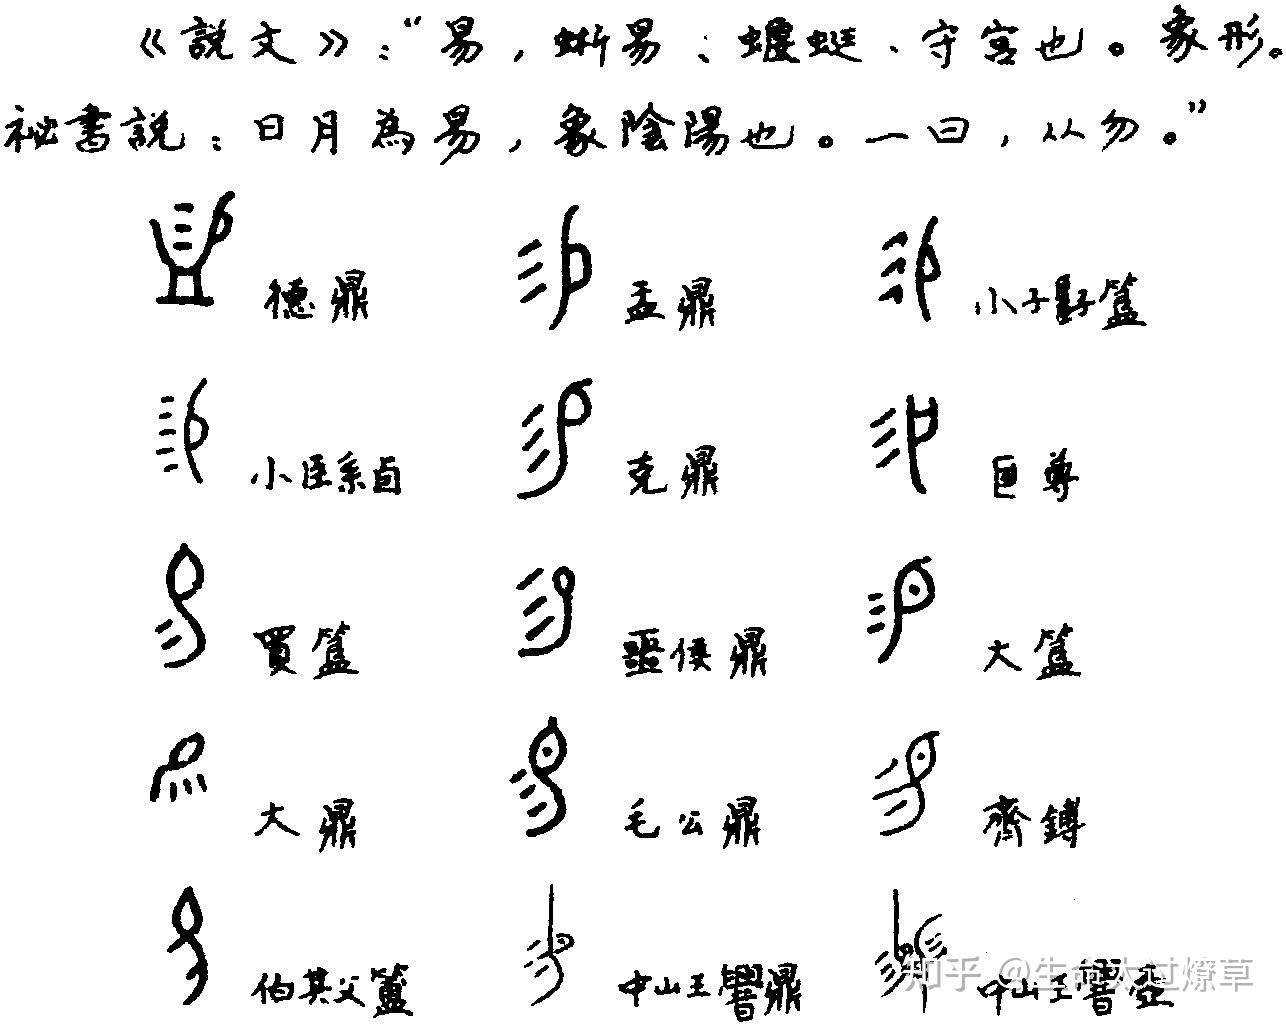 《説文》：“易，蜥易、蝘蜓、守宮也。象形。
祕書説：日月為易，象陰陽也。一曰，从勿。”
德鼎 盂鼎 小子𠭯簋
小臣系卣 克鼎 尊
買簋 噩侯鼎 大簋
大鼎 毛公鼎 齊鎛
伯其父簠 中山王鼎 中山王壺
知乎 @生命大过燎草